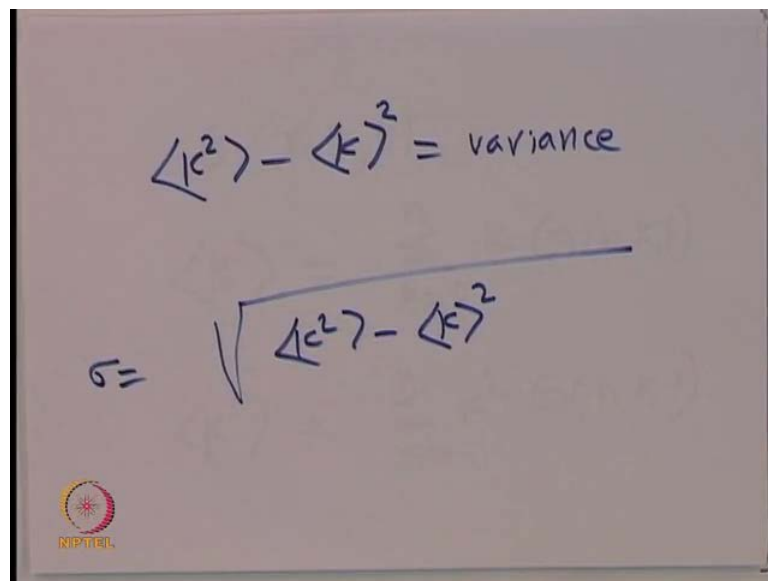 ⟨k²⟩ − ⟨k⟩² = variance
σ = √(⟨k²⟩ − ⟨k⟩²)
NPTEL